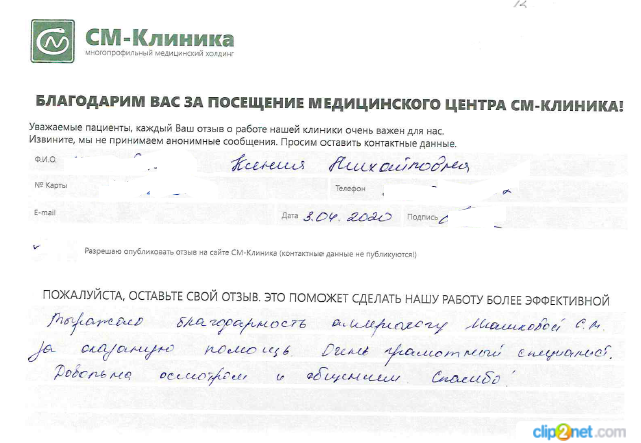 СМ-Клиника
многопрофильный медицинский холдинг
БЛАГОДАРИМ ВАС ЗА ПОСЕЩЕНИЕ МЕДИЦИНСКОГО ЦЕНТРА СМ-КЛИНИКА!
Уважаемые пациенты, каждый Ваш отзыв о работе нашей клиники очень важен для нас.
Извините, мы не принимаем анонимные сообщения. Просим оставить контактные данные.
Ф.И.О. Ксения Михайловна
№ Карты Телефон
E-mail Дата 3.04.2020 Подпись
Разрешаю опубликовать отзыв на сайте СМ-Клиника (контактные данные не публикуются!)
ПОЖАЛУЙСТА, ОСТАВЬТЕ СВОЙ ОТЗЫВ. ЭТО ПОМОЖЕТ СДЕЛАТЬ НАШУ РАБОТУ БОЛЕЕ ЭФФЕКТИВНОЙ
Выражаю благодарность аллергологу Машковой С.М.
за оказаную помощь. Очень грамотный специалист.
Довольна осмотром и общением. Спасибо!
clip2net.com